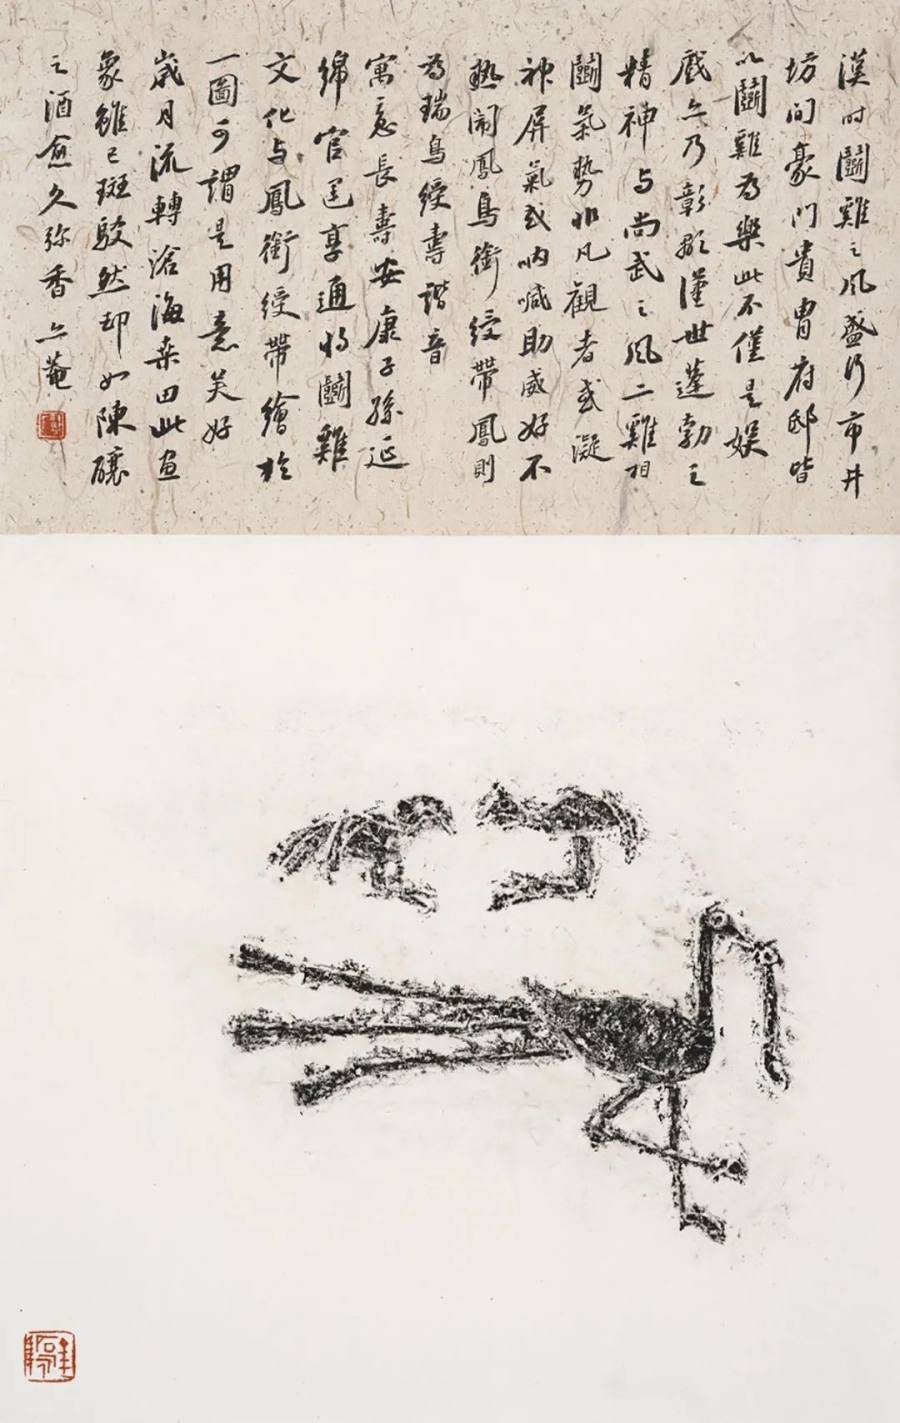 漢时鬭雞之风盛行市井
坊间豪门贵胄府邸皆
以鬭雞为樂此不僅是娱
戲亦乃彰顯漢世蓬勃之
精神与尚武之风二雞相
鬭氣勢非凡觀者或凝
神屏氣或呐喊助威好不
熱闹鳳鳥銜绶带鳳則
为瑞鸟绶壽谐音
寓意长壽安康子孫延
绵官運享通将鬭雞
文化与鳳銜绶帶繪於
一圖可謂是用意美好
歲月流轉滄海桒田此画
象雖已斑駁然却如陳釀
之酒愈久弥香亦菴